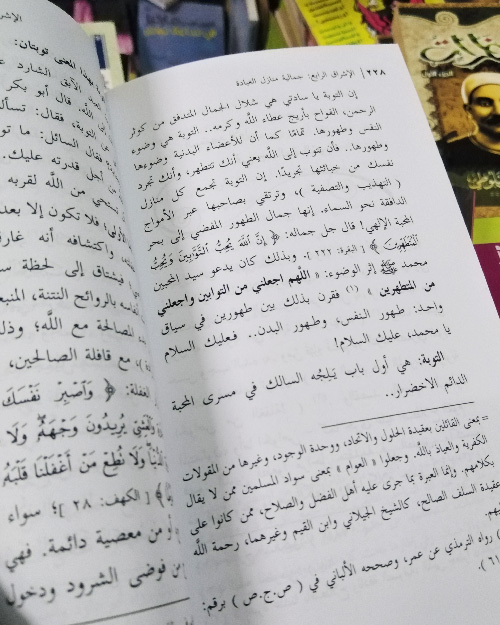 ٢٢٨ الإشراق الرابع: جمالية منازل العبادة
إن التوبة يا سادتي هي شلال الجمال المتدفق من كوثر
الرحمن، الفواح بأريج عطاء الله وكرمه.. التوبة هي وضوء
النفس وطهورها. تمامًا كما أن للأعضاء البدنية وضوءها
وطهورها.. فأن تتوب إلى الله يعني أنك تتطهر، وأنك تجرد
نفسك من خبائثها تجريدًا. إن التوبة تجمع كل منازل
( التهذيب والتصفية )، وترتقي بصاحبها عبر الأمواج
الدافقة نحو السماء. إنها جمال الطهور المفضي إلى بحر
المحبة الإلهي! قال جل جماله: ﴿ إِنَّ اللَّهَ يُحِبُّ التَّوَّابِينَ وَيُحِبُّ
الْمُتَطَهِّرِينَ ﴾ [ البقرة: ٢٢٢ ]. وبذلك كان يدعو سيد المحبين
محمد ﷺ إثر الوضوء: « اللهم اجعلني من التوابين واجعلني
من المتطهرين » (١) فقرن بذلك بين طهورين في سياق
واحد: طهور النفس، وطهور البدن.. فعليك السلام
يا محمد، عليك السلام!
التوبة: هي أول باب يَلِجُه السالك في مسرى المحبة
الدائم الاخضرار..
= بمعنى القائلين بعقيدة الحلول والاتحاد، ووحدة الوجود، وغيرها من المقولات
الكفرية والعياذ بالله. وجعلوا « العوام » بمعنى سواد المسلمين ممن لا يقال
بكلامهم. وإنما العبرة بما جرى عليه أهل الفضل والصلاح، ممن كانوا على
عقيدة السلف الصالح، كالشيخ الجيلاني وابن القيم وغيرهما، رحمة الله
رواه الترمذي عن عمر، وصححه الألباني في ( ص.ج.ص ) برقم:
المعنى توبتان:
الآبق الشارد
الله. قال أبو بكر
عن التوبة، فقال:
فقال السائل: ما
أجل قدرته عليك.
من الله لقربه
فلا تكون إلا
واكتشافه أنه
فيشتاق إلى لحظة
بالروائح النتنة،
المصالحة مع الله؛
مع قافلة الصالحين،
﴿ وَاصْبِرْ نَفْسَكَ
يُرِيدُونَ وَجْهَهُ وَلَا
وَلَا تُطِعْ مَنْ أَغْفَلْنَا قَلْبَهُ
[ الكهف: ٢٨ ]؛ سواء
أو من معصية دائمة. فهي
من فوضى الشرود ودخول